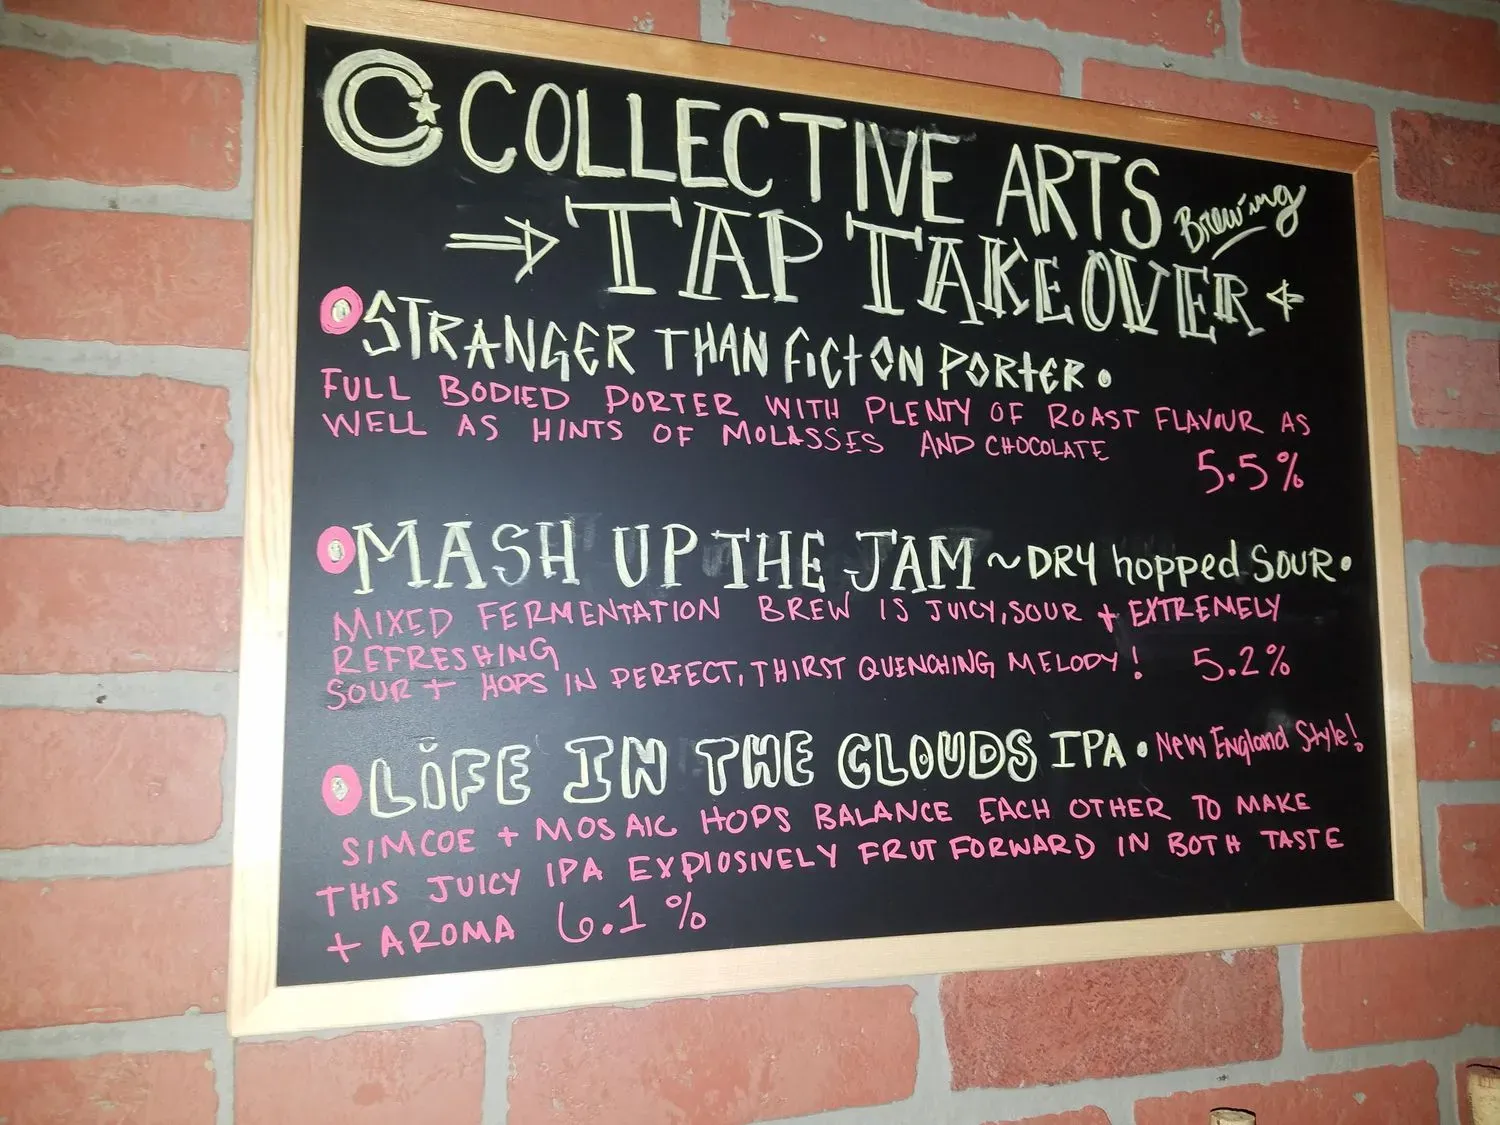 COLLECTIVE ARTS Brewing
TAP TAKEOVER
STRANGER THAN FiCtiON PORtER
FULL BODIED PORTER WITH PLENTY OF ROAST FLAVOUR AS
WELL AS HINTS OF MOLASSES AND CHOCOLATE
5.5%
MASH UP THE JAM ~ DRY hopped SOUR
MIXED FERMENTATION BREW IS JUICY, SOUR + EXTREMELY
REFRESHING
SOUR + HOPS IN PERFECT, THIRST QUENCHING MELODY! 5.2%
LiFE IN THE CLOUDS IPA • New England Style!
SIMCOE + MOSAIC HOPS BALANCE EACH OTHER TO MAKE
THIS JUICY IPA EXPlOSIVELY FRUT FORWARD IN BOTH TASTE
+ AROMA 6.1%